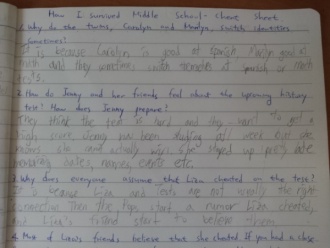 How I survived Middle School - cheat sheet
1. Why do the twins, Carolyn and Marlyn, switch identities
sometimes?
It is because Carolyn is good at Spanish, Marlyn good at
math and they sometime switch at Spanish or math
tests.
2. How do Jenny and her friends feel about the upcoming history
test? How does Jenny prepare?
They think the test is hard and to get a
high score. Jenny has been studying all week and she
she stayed up late
dates, names, events etc.
3. Why does everyone assume that Lisa cheated on the test?
It is because Lisa and tests are not usually the right
connection. Then the Pops start a rumor Lisa cheated,
and Lisa's friend start to believe them.
4. Most of Lisa's friends believe that she cheated. If you had a close